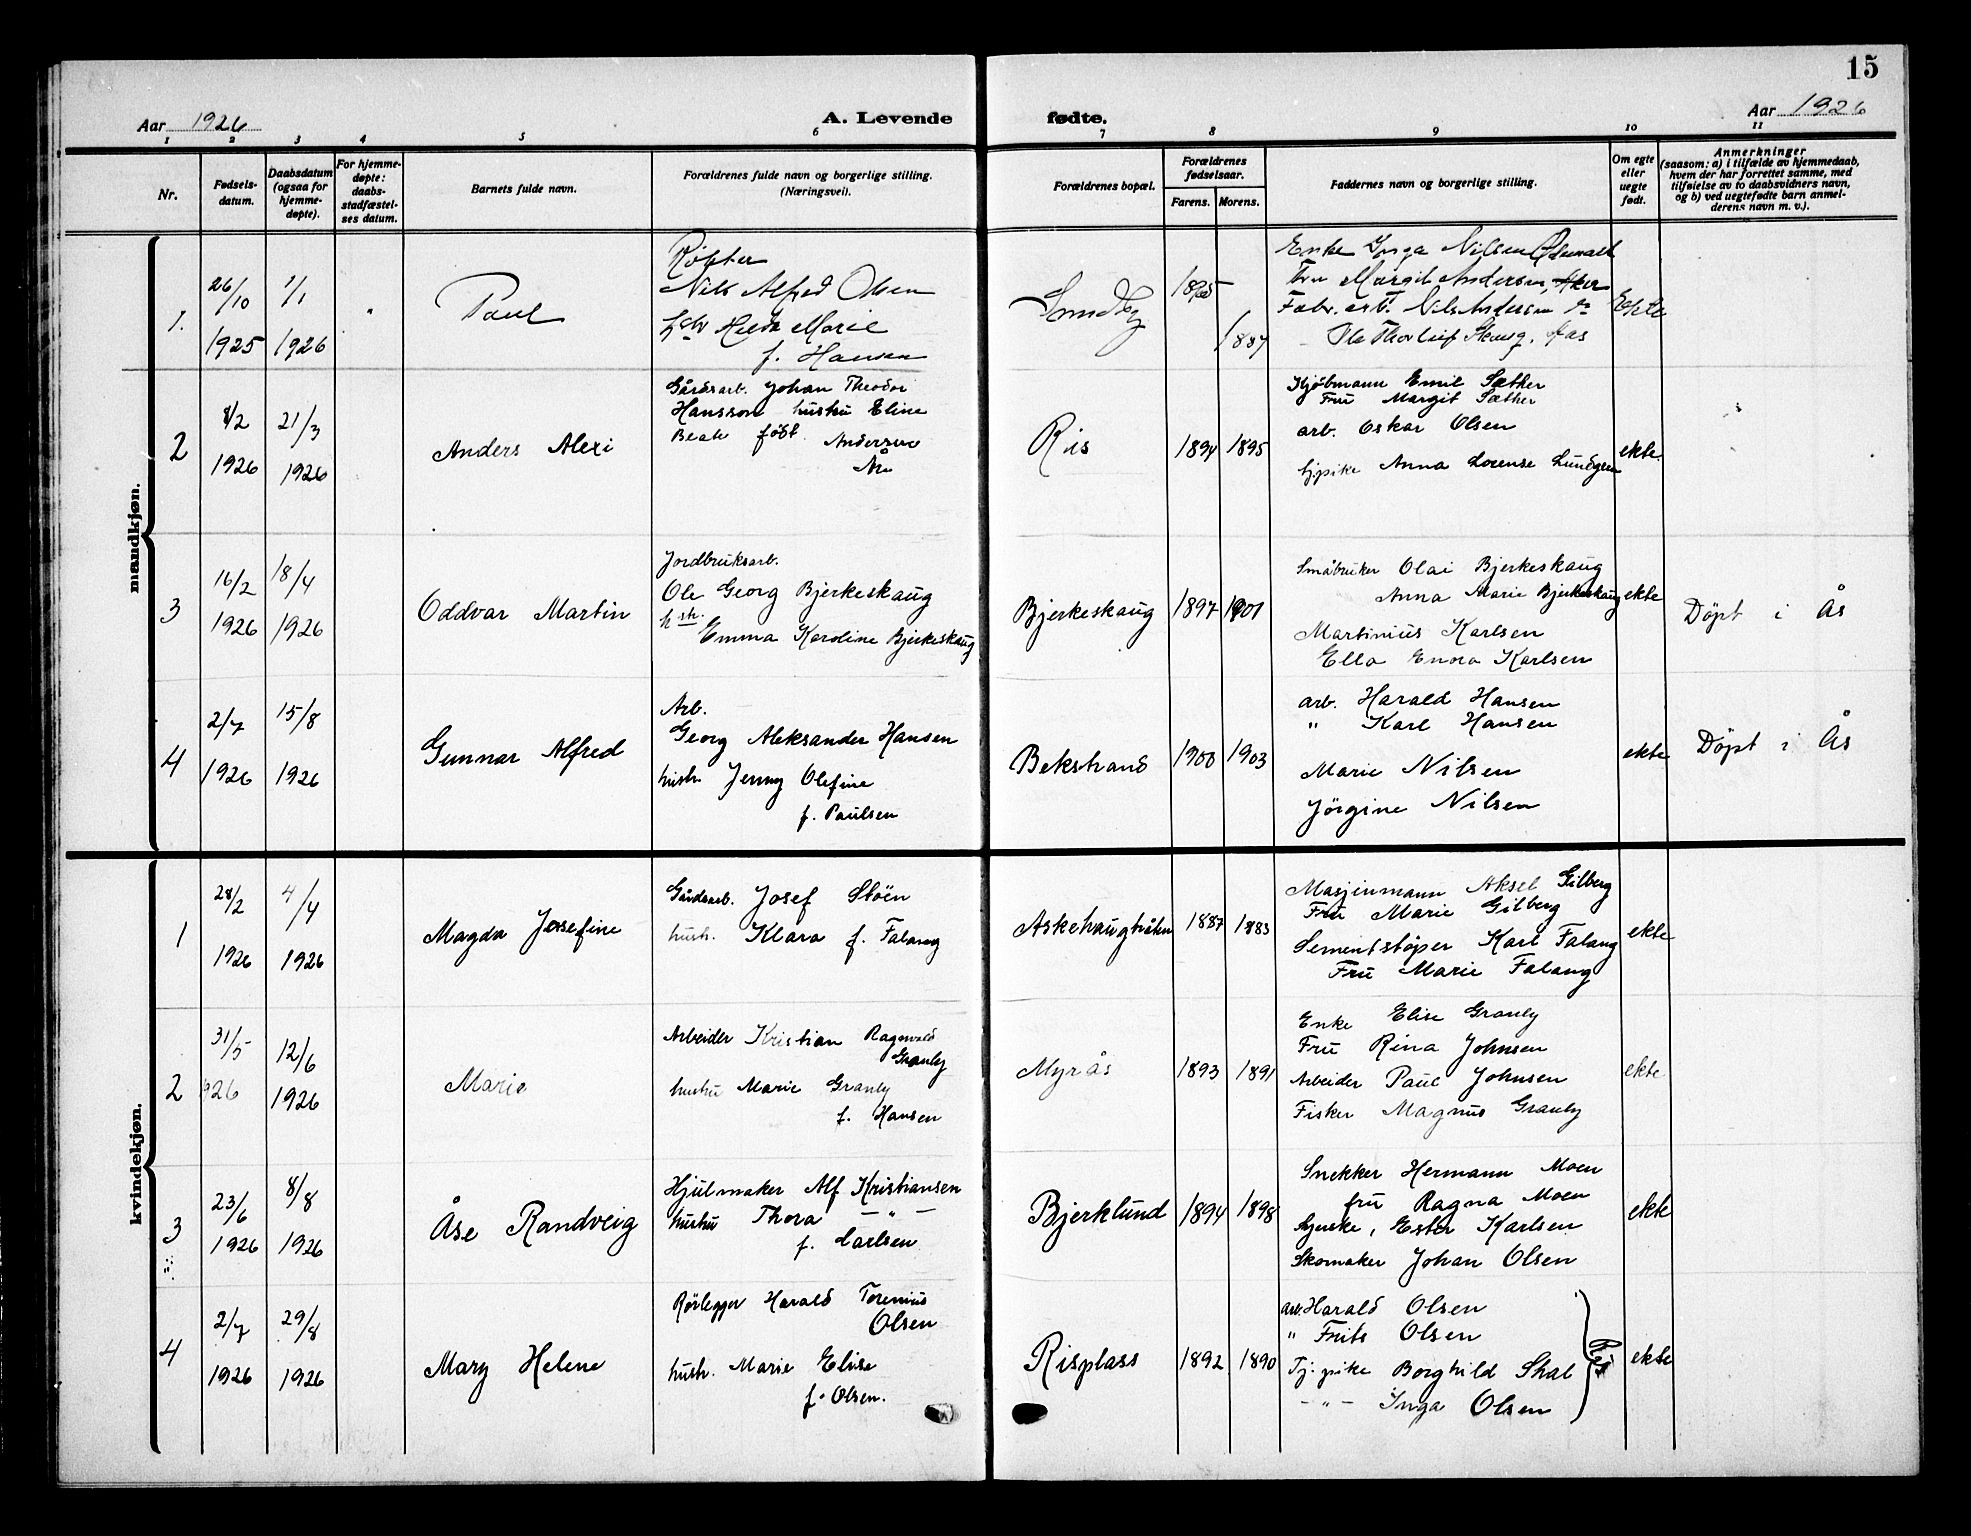 15
Aar 1926
A. Levende
fødte.
Aar 1926
1 2 3 4 5 6 7 8 9 10 11
Nr.
Fødsels-
datum.
Daabsdatum
(ogsaa for
hjemme-
døpte).
For hjemme-
døpte:
daabs-
stadfæstel-
ses datum.
Barnets fulde navn.
Forældrenes fulde navn og borgerlige stilling.
(Næringsvei).
Forældrenes bopæl.
Forældrenes
fødselsaar.
Farens. Morens.
Faddernes navn og borgerlige stilling.
Om egte
eller
uegte
født.
Anmerkninger
(saasom: a) i tilfælde av hjemmedaab,
hvem der har forrettet samme, med
tilføielse av to daabsvidners navn,
og b) ved uegtefødte barn anmel-
derens navn m. v.).
mandkjøn.
1.
26/10
1925
1/1
1926
Paul
Røkter
Nils Alfred Olsen
Marie
f. Hansen
Sundby
1887
Enke Inga Nilsen
Fru Margit Andersen, Aker
Fabr. arb. Nils Andersen
Ole Thorleif Skaug, Aas
Ekte
2
8/2
1926
21/3
1926
Anders Alexi
Gårdsarb. Johan Theodor
Hansson hustru Eline
Beate født Andersen
Ris
1894
1895
Kjøbmann Emil Sæther
Fru Margit Sæther
arb. Oskar Olsen
tj.pike Anna Lorense Lundgren
ekte.
3
16/2
1926
18/4
1926
Oddvar Martin
Jordbruksarb.
Ole Georg Bjerkeskaug
hstr.
Emma Karoline Bjerkeskaug
Bjerkeskaug
1897
1901
Småbruker Olai Bjerkeskaug
Anna Marie Bjerkeskaug
Martinius Karlsen
Ella Enora Karlsen
ekte
Døpt i Ås
4
2/7
1926
15/8
1926
Gunnar Alfred
Arb.
Georg Aleksander Hansen
hustr. Jenny Olefine
f. Paulsen
Bekstrand
1900
1903
arb. Harald Hansen
" Karl Hansen
Marie Nilsen
Jörgine Nilsen
ekte
Döpt i Ås
kvindekjøn.
1
28/2
1926
4/4
1926
Magda Josefine
Gårdsarb. Josef Stöen
hustr. Klara f. Falang
1887
1883
Masjinmann Aksel Gilberg
Fru Marie Gilberg
Sementstøper Karl Falang
Fru Marie Falang
ekte
2
31/5
926
12/6
1926
Marie
Arbeider Kristian Ragnvald
Granly
hustru Marie Granly
f. Hansen
Myrås
1893
1891
Enke Elise Granly
Fru Rina Johnsen
Arbeider Paul Johnsen
Fisker Magnus Granly
ekte
3
23/6
1926
8/8
1926
Åse Randveig
Hjulmaker Alf Kristiansen
hustru Thora — " —
f. Carlsen
Bjerklund
1894
1898
Snekker Hermann Moen
fru Ragna Moen
Ester Karlsen
Skomaker Johan Olsen
ekte
4
2/7
1926
29/8
1926
Mary Helene
Rörlegger Harald Torenius
Olsen
hustr. Marie Elise
f. Olsen.
Risplass
1892
1890
arb. Harald Olsen
" Frits Olsen
Tj. pike Borghild Skal
— " — Inga Olsen
Ris
ekte